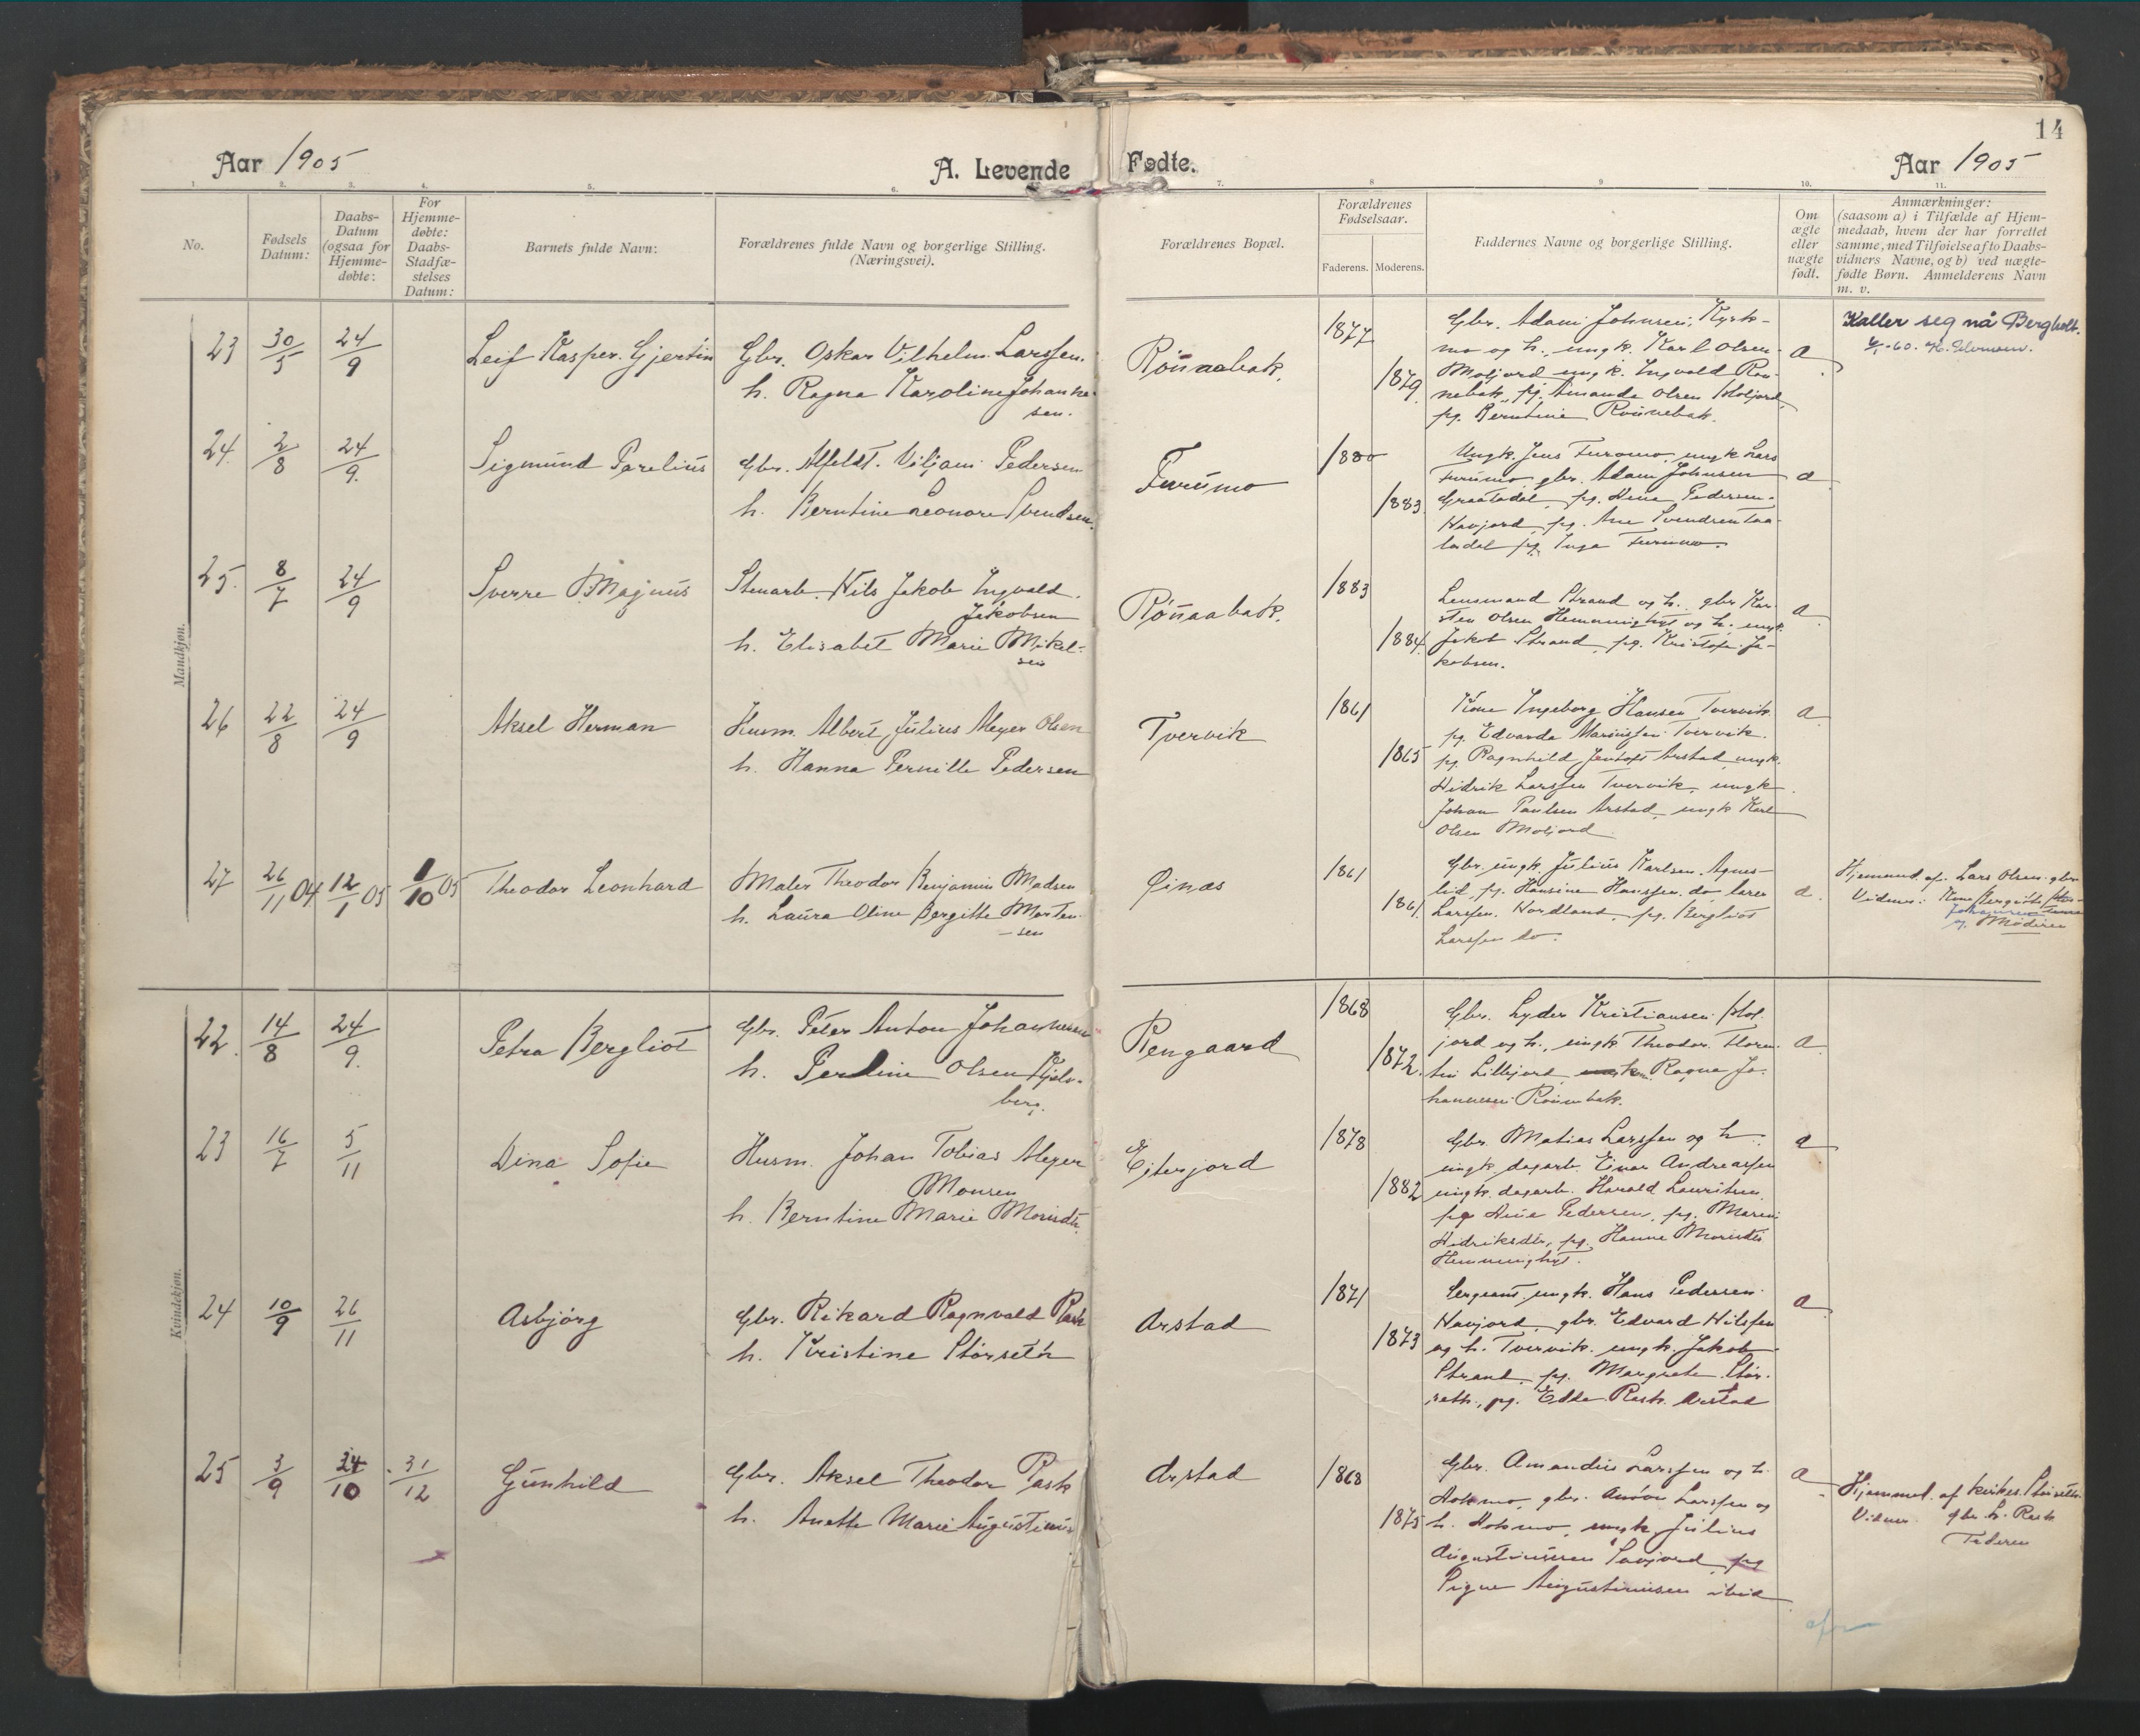 14
Aar 1905
A. Levende Fødte.
Aar 1905
1. 2. 3. 4. 5. 6. 7. 8 9 10. 11.
No.
Fødsels
Datum:
Daabs-
Datum
(ogsaa for
Hjemme-
døbte:
For
Hjemme-
døbte:
Daabs-
Stadfæ-
stelses
Datum:
Barnets fulde Navn:
Forældrenes fulde Navn og borgerlige Stilling.
(Næringsvei).
Forældrenes Bopæl.
Forældrenes
Fødselsaar.
Faderens. Moderens.
Faddernes Navne og borgerlige Stilling.
Om
ægte
eller
uægte
født.
Anmærkninger:
(saasom a) i Tilfælde af Hjem-
medaab, hvem der har forrettet
samme, med Tilføielse af to Daabs-
vidners Navne, og b) ved uægte-
fødte Børn. Anmelderens Navn
m. v.
Mandkjøn.
23 30/5 24/9 Leif Kasper Gjertin
Gbr. Oskar Vilhelm Larssen.
h. Ragna Karoline Johanne-
sen.
Rönnabak.
1877
1879
Gbr. Adam Johnsen, Kyrk-
mo og h., ungk. Karl Olsen
Moljord, ungk. Ingvald Rön-
nebak, pg. Amanda Olsen Moljord,
pg. Berntine Rönnebak.
a
Kaller seg nå Bergholt.
24. 2/8 24/9. Sigmund Parelius
Gbr. Alfeldt Viljam Pedersen
h. Berntine Leonore Svendsen.
Furumo
1880
1883
Ungk. Jens Furomo, ungk Lars
Furumo, gbr. Adam Johnsen
Graatådal, pg. Pedersen
pg. Ane Svendsen
pg. Inga Furumo.
a
25. 8/7 24/9 Sverre Magnus
Stenarb. Nils Jakob Ingvald
Jakobsen
h. Elisabet Marie Mikel-
sen
Rönnabak.
1883
1884
Lensmand Strand og h. gbr Kar-
sten Olsen Hemminghyt og h. ungk.
Jakob Strand, pg. Kristofa Ja-
kobsen.
a
26 22/8 24/9 Aksel Herman
Husm. Albert Julius Meyer Olsen
h. Hanna Pernille Pedersen
Tvervik
1861
1865
Kone Ingeborg Hansen Tvervik
pg. Edvarda Mariussen Tvervik.
pg. Ragnhild Jentoft Arstad, ungk.
Hidrik Larssen Tvervik, ungk
Johan Paulsen Arstad, ungk Karl
Olsen Moljord
a
27 26/11 04 12/1 05 1/10 05 Theodor Leonhard
Maler Theodor Benjamin Madsen
h. Laura Oline Bergitte Morten-
sen
Öinas
1861
1861.
Gbr. ungk. Julius Karlsen Agnes-
lid, pg. Hansine Hanssen, do, lærer
Larssen, Nordland, pg. Bergliot
Larssen do.
a.
Hjemmd. af. Lars Olsen. gbr
Vidner: Kone
og Moderen
Kvindekjøn.
22. 14/8 24/9. Petra Bergliot
Gbr. Peter Anton Johannesen
h. Perline Olsen Kjels-
berg.
Rengaard
1868
1872.
Gbr. Lyder Kristiansen Mol-
jord og h., ungk. Theodor Thoru-
Lillejord, Ragna Jo-
hannesen Rönnebak.
a
23 16/7 5/11 Dina Sofie
Husm. Johan Tobias Meyer
Monsen
h. Berntine Marie Morisdtr.
Ejterjord
1878
1882
Gbr. Matias Larssen og h
ungk. dagarb. Einar Andreassen
ungk. dagarb. Harald Lauritsen
pg Pedersen, pg. Maren
Hidriksdtr, pg. Hanna Morisdtr
Hemminghyt.
a
24 10/9 26/11 Asbjörg
Gbr. Rikard Ragnvald Rask
h. Kristine Störseth
Arstad
1871
1873
Sergeant ungk. Hans Pedersen
gbr. Edvard Nilssen
og h. Tvervik. ungk. Jakob
Strand, pg. Margrete Stör-
seth, pg. Edda Rask. Arstad
a
25 3/9 24/10 31/12 Gunhild
Gbr. Aksel Theodor Rask
h. Anette Marie Augustinus
Arstad
1868
1875
Gbr. Amandus Larssen og h.
Hokmo, gbr. Larssen og
h. Hokmo, ungk. Julius
Augustinusen pg
Signe Augustinusen ibid
a
Hjemmed. af kirkes. Störseth.
Vidner gbr. L. Rask
Faderen